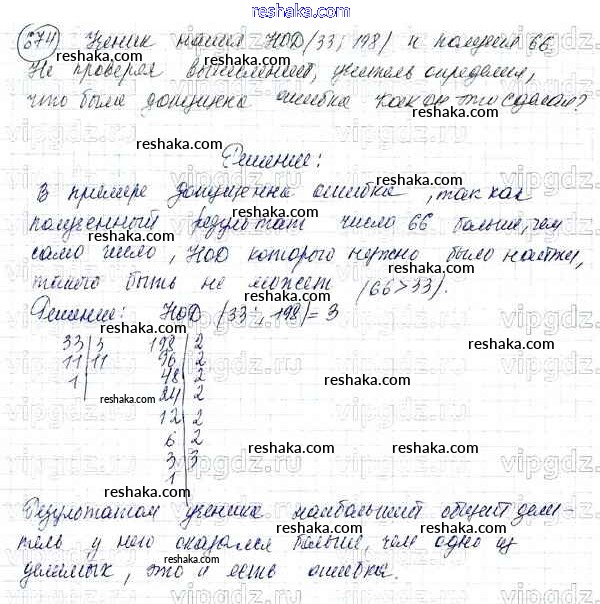 reshaka.com
674 Ученик нашел НОД (33; 198) и получил 66.
Не проверяя вычислений, учитель определил,
что была допущена ошибка как он это сделал?
Решение:
В примере допущенна ошибка, так как
полученный результат число 66 больше, чем
само число, НОД которого нужно было найти,
такого быть не может (66>33).
Решение: НОД (33; 198) = 3
33 | 3 198 | 2
11 | 11 96 | 2
1 | 48 | 2
24 | 2
12 | 2
6 | 2
3 | 3
1
Результатом ученика наибольший общий дели-
тель у него оказался больше, чем одно из
делимых, это и есть ошибка.